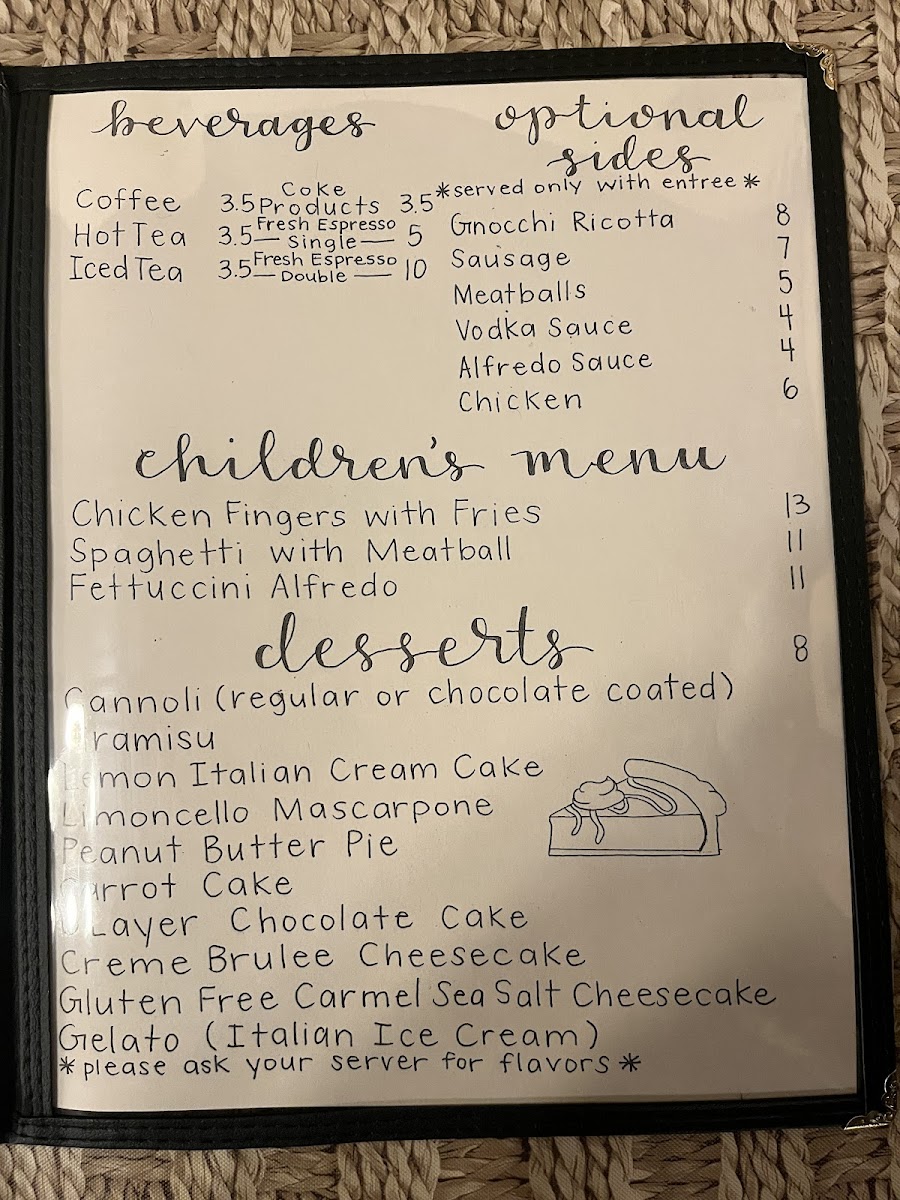 beverages
Coffee 3.5
Hot Tea 3.5
Iced Tea 3.5
Coke
Products 3.5
Fresh Espresso
— Single — 5
Fresh Espresso
— Double — 10
optional
sides
*served only with entree*
Gnocchi Ricotta 8
Sausage 7
Meatballs 5
Vodka Sauce 4
Alfredo Sauce 4
Chicken 6
children's menu
Chicken Fingers with Fries 13
Spaghetti with Meatball 11
Fettuccini Alfredo 11
desserts 8
Cannoli (regular or chocolate coated)
Tiramisu
Lemon Italian Cream Cake
Limoncello Mascarpone
Peanut Butter Pie
Carrot Cake
Layer Chocolate Cake
Creme Brulee Cheesecake
Gluten Free Carmel Sea Salt Cheesecake
Gelato (Italian Ice Cream)
*please ask your server for flavors*